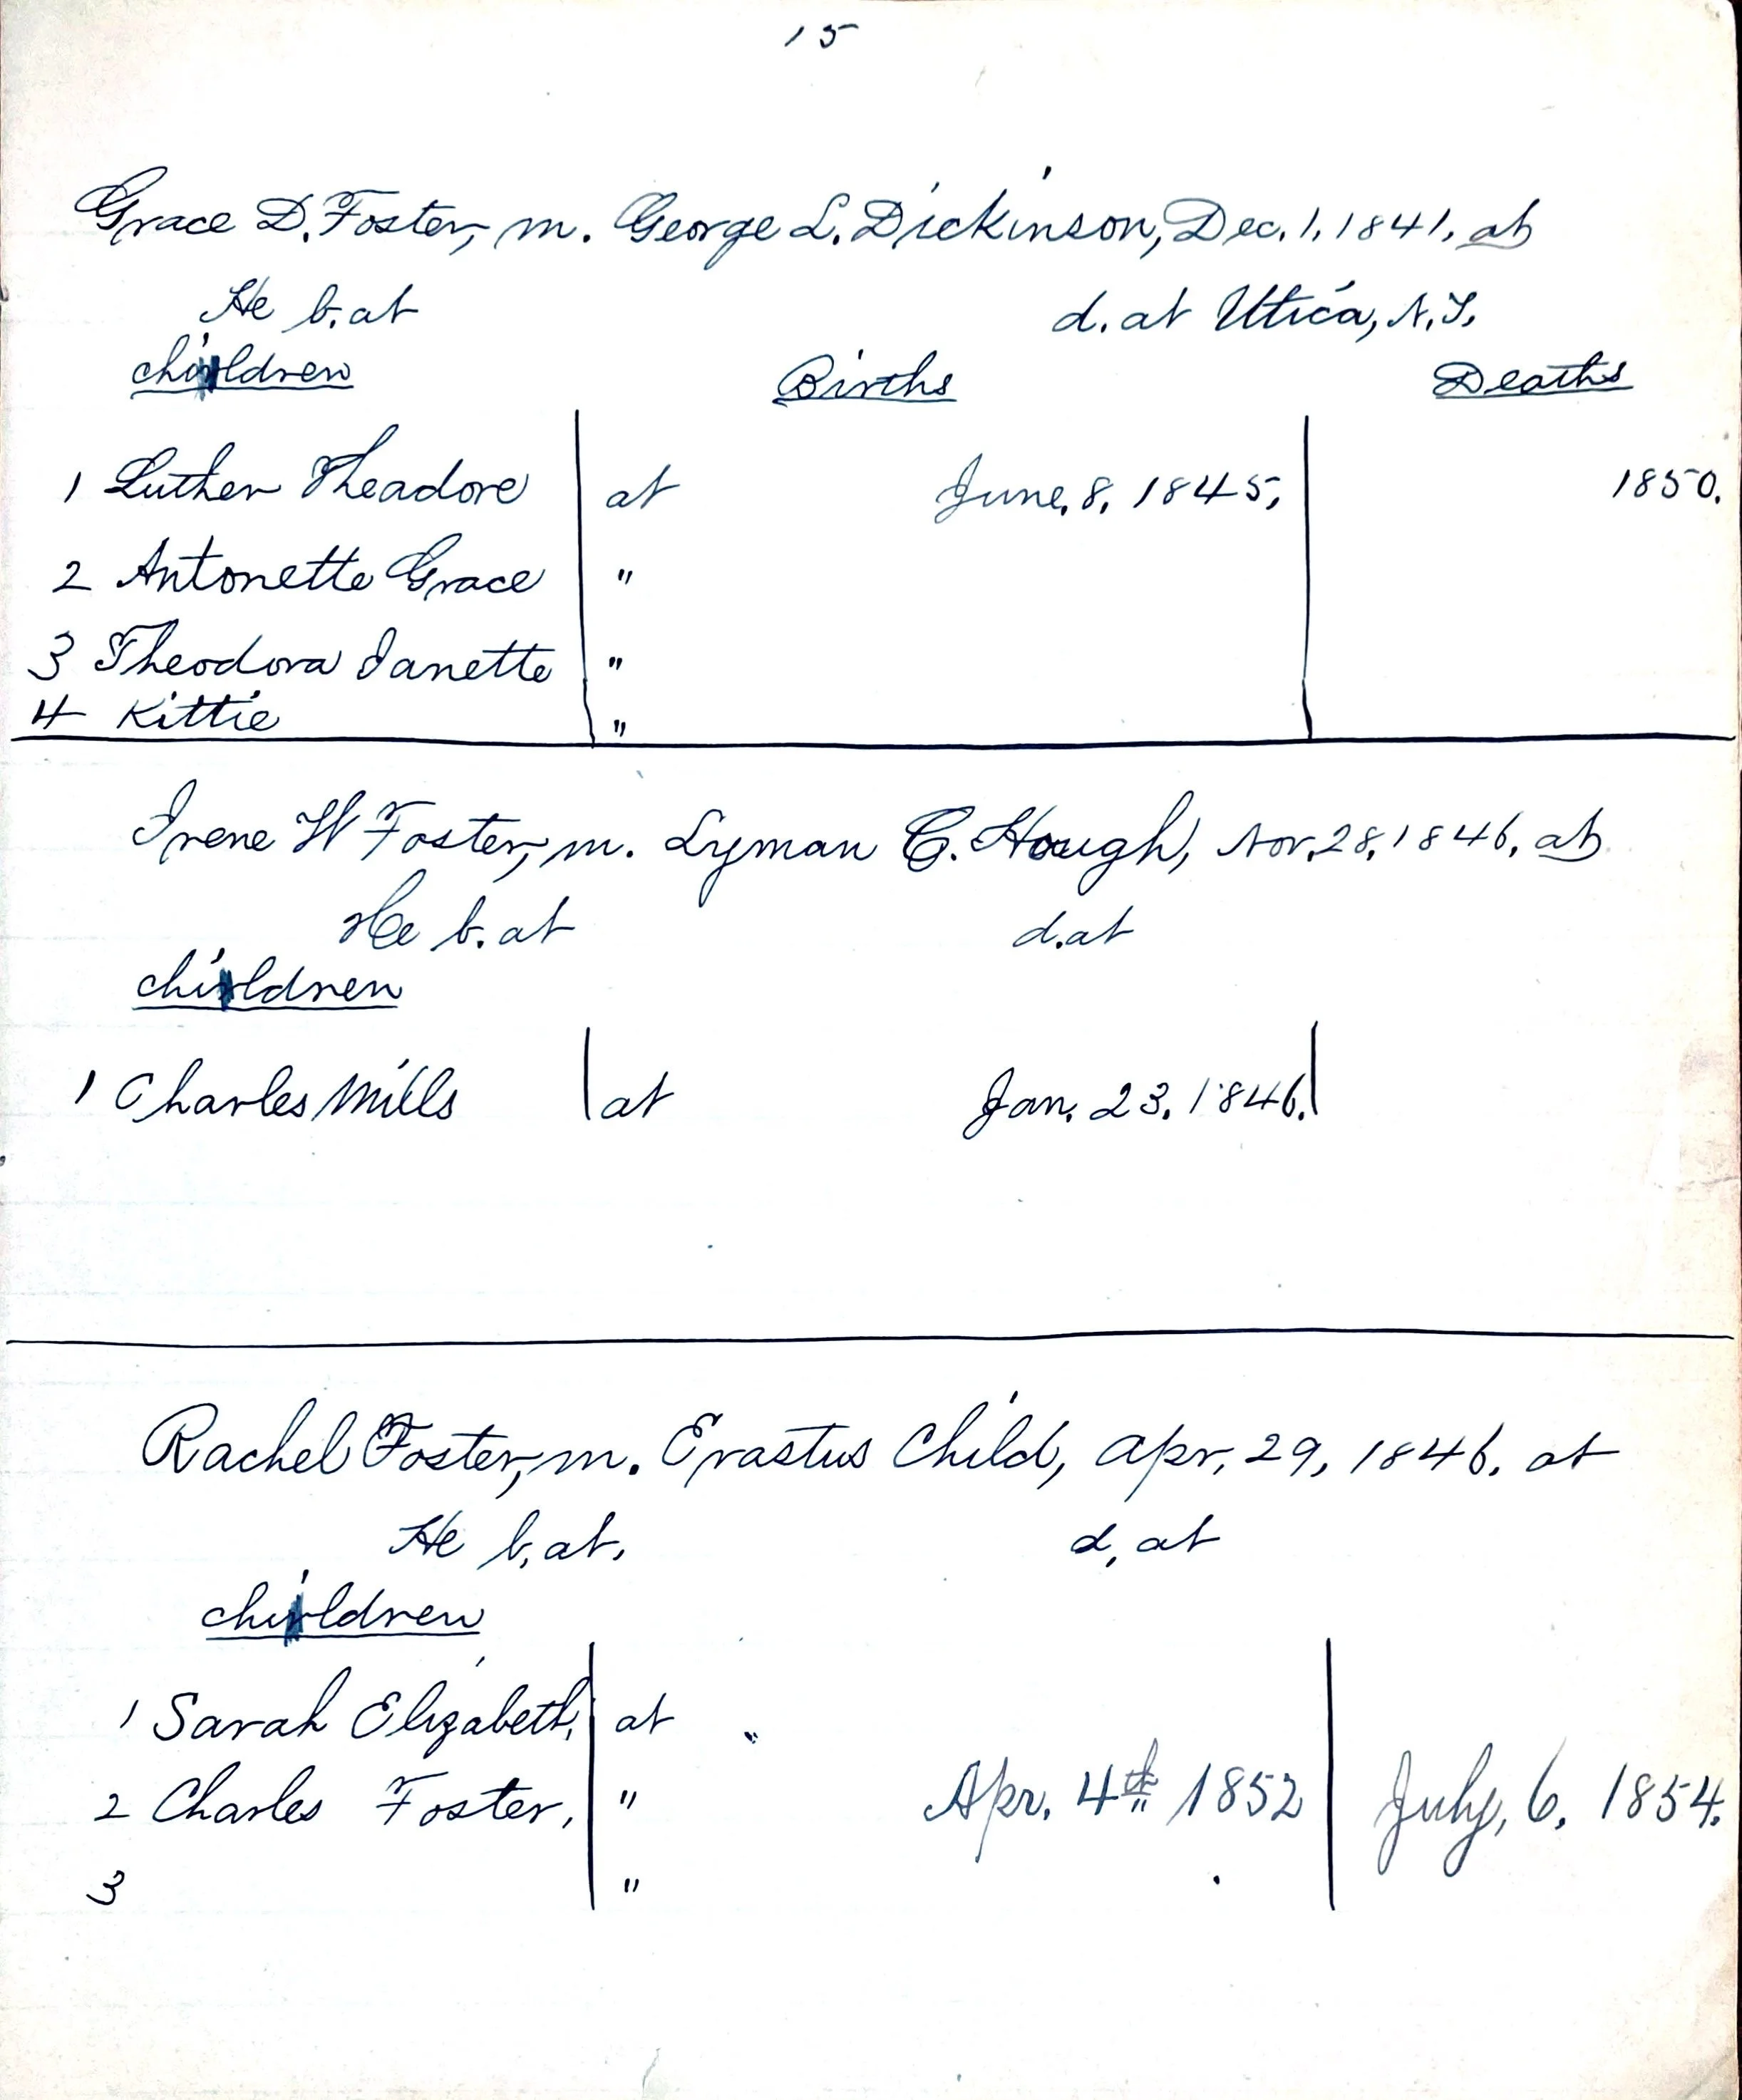 15
Grace D. Foster, m. George L. Dickinson, Dec. 1, 1841, at
He b. at d. at Utica, N.Y.
children Births Deaths
1 Luther Theadore at June, 8, 1845, 1850.
2 Antonette Grace "
3 Theodora Janette "
4 Kittie "
Irene W Foster, m. Lyman C. Hough, Nov. 28, 1846, at
He b. at d. at
children
1 Charles Mills at Jan. 23. 1846.
Rachel Foster, m. Erastus Child, Apr, 29, 1846. at
He b, at, d, at
children
1 Sarah Elizabeth, at "
2 Charles Foster, " Apr. 4th 1852 July, 6. 1854.
3 "